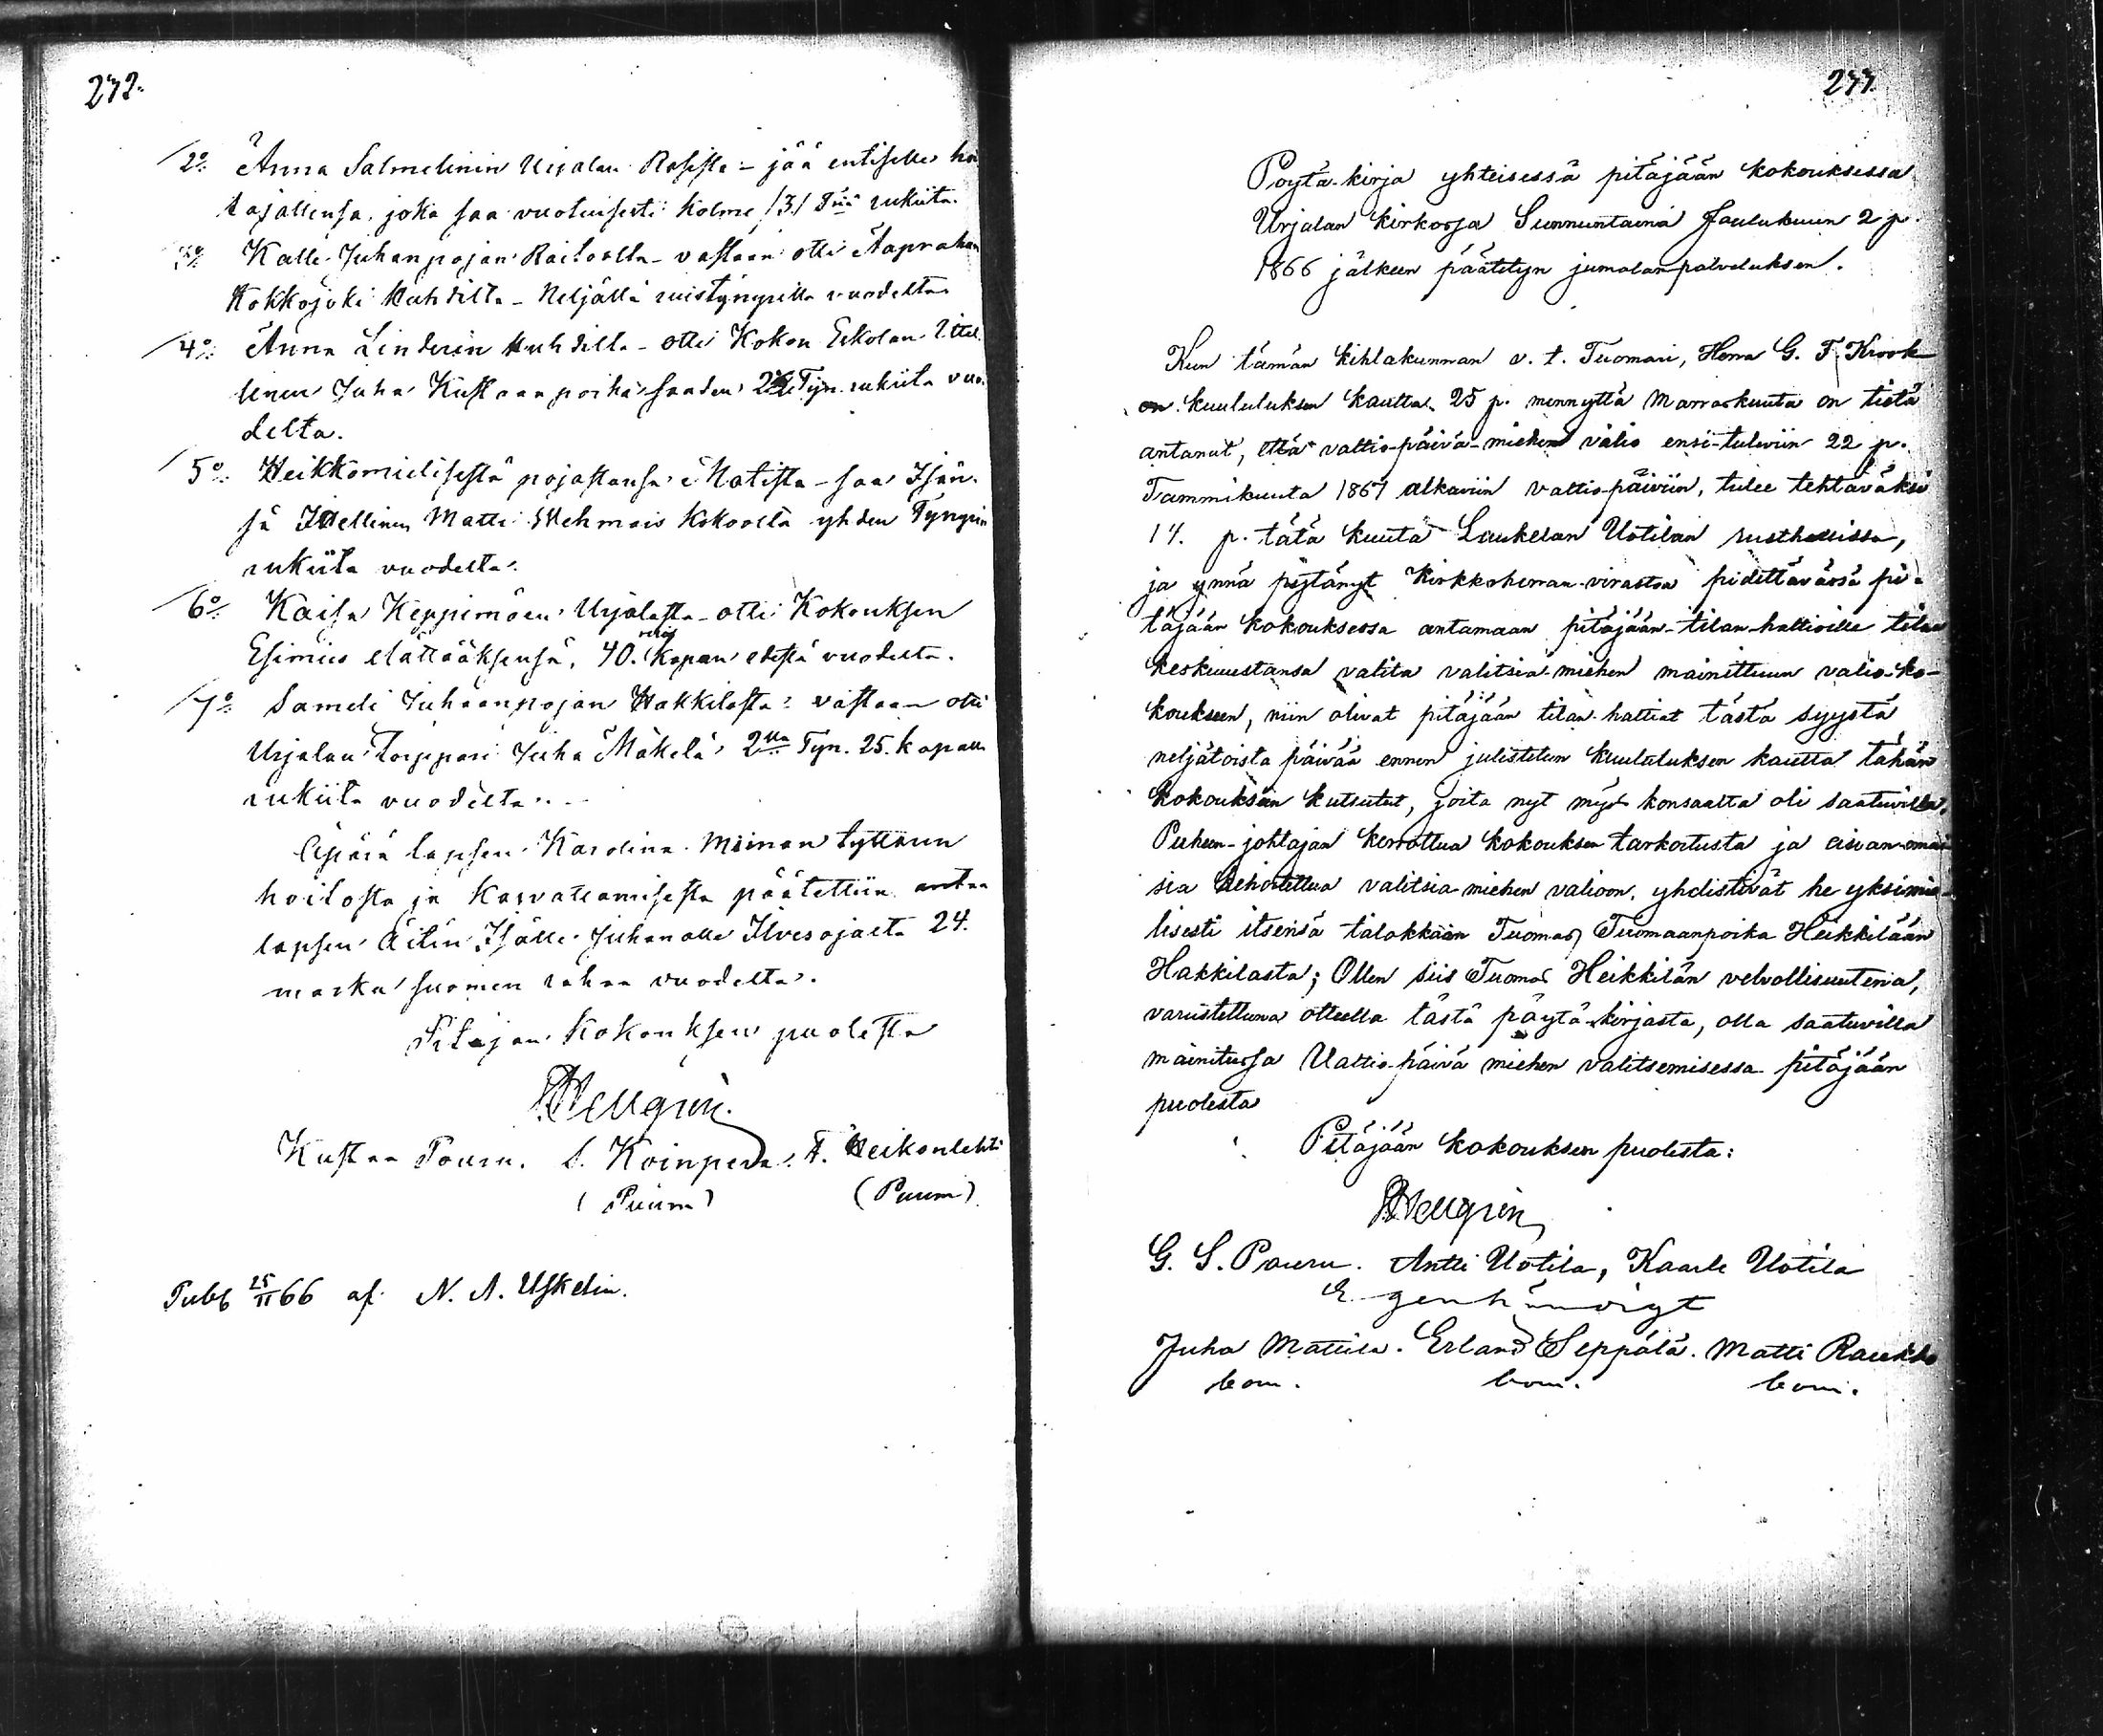 272.
2o Anna Salmelinin Urjalan Rasista - jää entiselle hoi
tajallensa, joka saa vuotuisesti kolme /3/ Tyn rukiita.
3o Kalle Juhanpojan Raitoolta - vastaan otti Aaprahan
Kokkojoki Huhdilta - Neljällä ruistynnyrillä vuodelta
4o Anna Linderin Huhdilta - otti Kokon Eskolan Itel
linen Juha Kustaanpoika saaden 2½ Tyn. rukiita vuo-
delta.
5o Heikkomielisestä pojastansa Matista - saa Isän-
sä Itellinen Matti Mehmais Kokoolta yhden Tynnyrin
rukiita vuodelta.
6o Kaisa Keppimäen Urjalasta - otti Kokouksen
Esimies elättääksensä, 40. Kapan edestä vuodelta.
7o Sameli Juhaanpojan Hakkilasta: vastaan otti
Urjalan Torppari Juha Mäkelä 2lla Tyn. 25. kapalla
rukiita vuodelta.
Äpärä lapsen Karolina Miinan tyttären
hoitosta ja Kasvattamisesta päätettiin antaa
lapsen Äitin Isälle Juhanalle Ilvesojalta 24.
markaa suomen rahaa vuodelta.
Pitäjän Kokouksen puolesta
Hellgrén.
Kustaa Pouru. S. Koinpera. F. Heikonlehti
(Puum) (Puum)
Publ 25/11 66 af N. A. Uskelin.
277.
Poytä-kirja yhteisessä pitäjään kokouksessa
Urjalan kirkossa Sunnuntaina Joulukuun 2 p.
1866 jälkeen päätetyn jumalanpalveluksen.
Kun tämän kihlakunnan v. t. Tuomari, Herra G. F. Krook
on kuuluutuksen kautta 25 p. mennyttä Marraskuuta on tietä
antanut, että valtio-päivä-miehen valio ensi-tuleviin 22 p.
Tammikuuta 1867 alkaviin valtio-päiviin, tulee tehtäväksi
14. p. tätä kuuta Laukelan Uotilan rusthollissa,
ja ynnä pyytänyt Kirkkoherran-virastoa pidettävässä pi-
täjään kokouksessa antamaan pitäjään-tilan-haltioille tilaa
keskuustansa valita valitsia-miehen mainittuun valio-ko-
koukseen, niin olivat pitäjään tilan-haltiat tästä syystä
neljätoista päivää ennen julistetun kuulutuksen kautta tähän
kokouksään kutsutut, joita nyt myös konsaalta oli saatuvilla.
Puheen-johtajan kerrottua kokouksen tarkoitusta ja asian-omai
sia kehoitettua valitsia-miehen valioon, yhdistivät he yksimie-
lisesti itsensä talokkaan Tuomas Tuomaanpoika Heikkilään
Hakkilasta; Ollen siis Tuomas Heikkilän velvollisuutena,
varustettuna otteella tästä päytä-kirjasta, olla saatuvilla
mainitussa Valtio-päivä miehen valitsemisessa pitäjään
puolesta
Pitäjään kokouksen puolesta:
Hellgrén
G. S. Pouru. Antti Uotila, Kaarle Uotila
Egenhändigt
Juha Mattila. Erland Seppälä. Matti Raukko
bom. bom. bom.